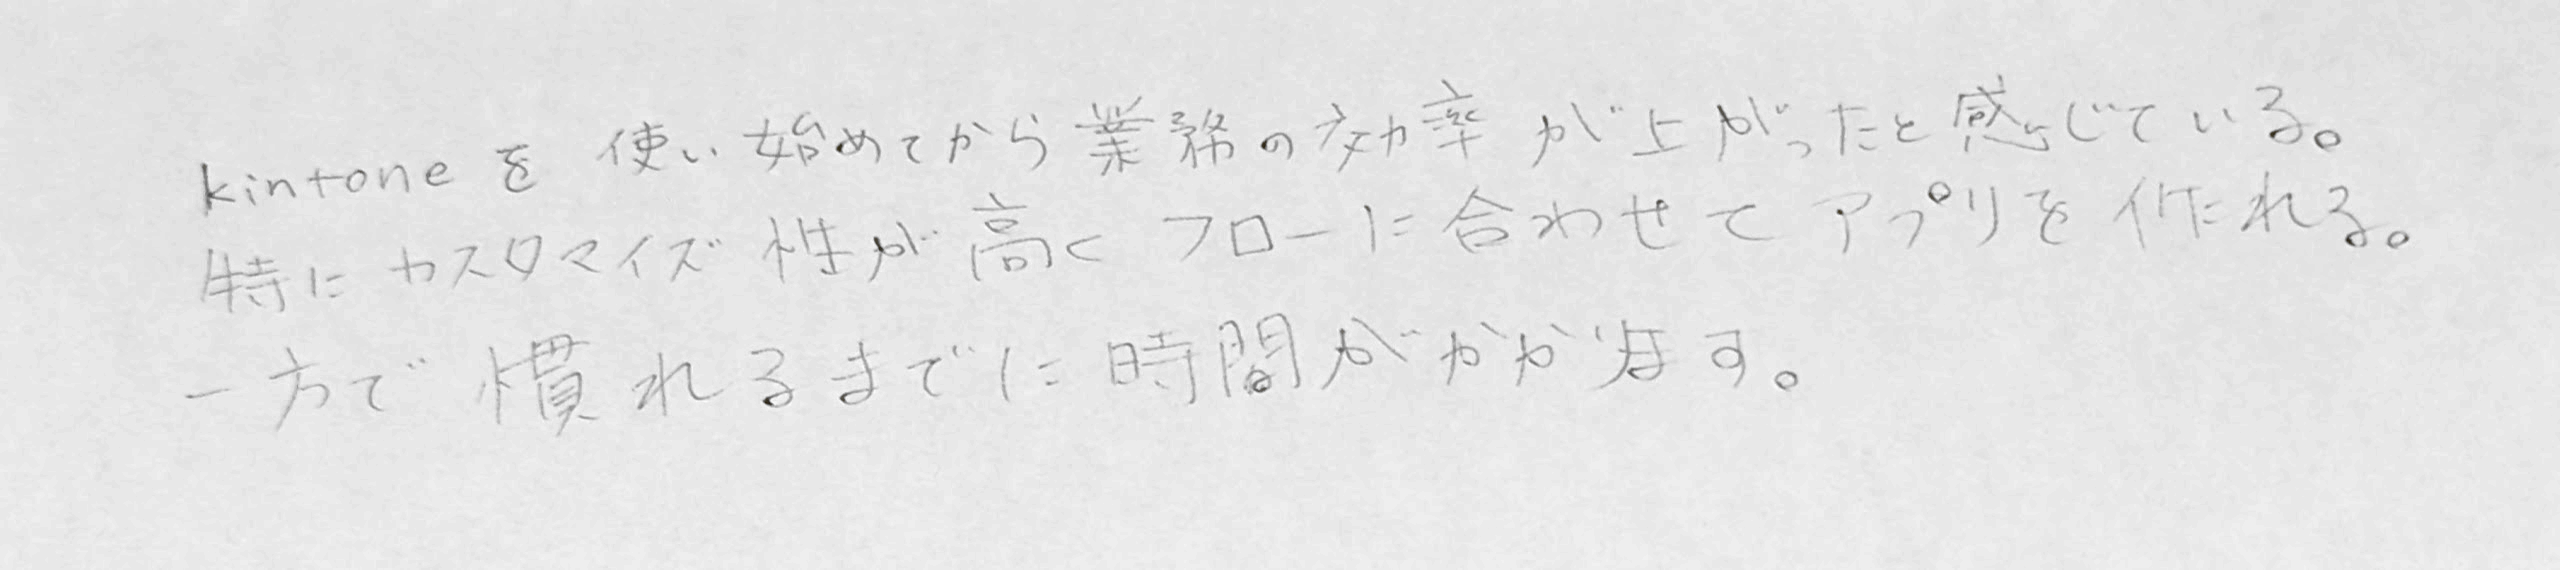 kintoneを使い始めてから業務の効率が上がったと感じている。
特にカスタマイズ性が高くフローに合わせてアプリを作れる。
一方で慣れるまでに時間がかかります。